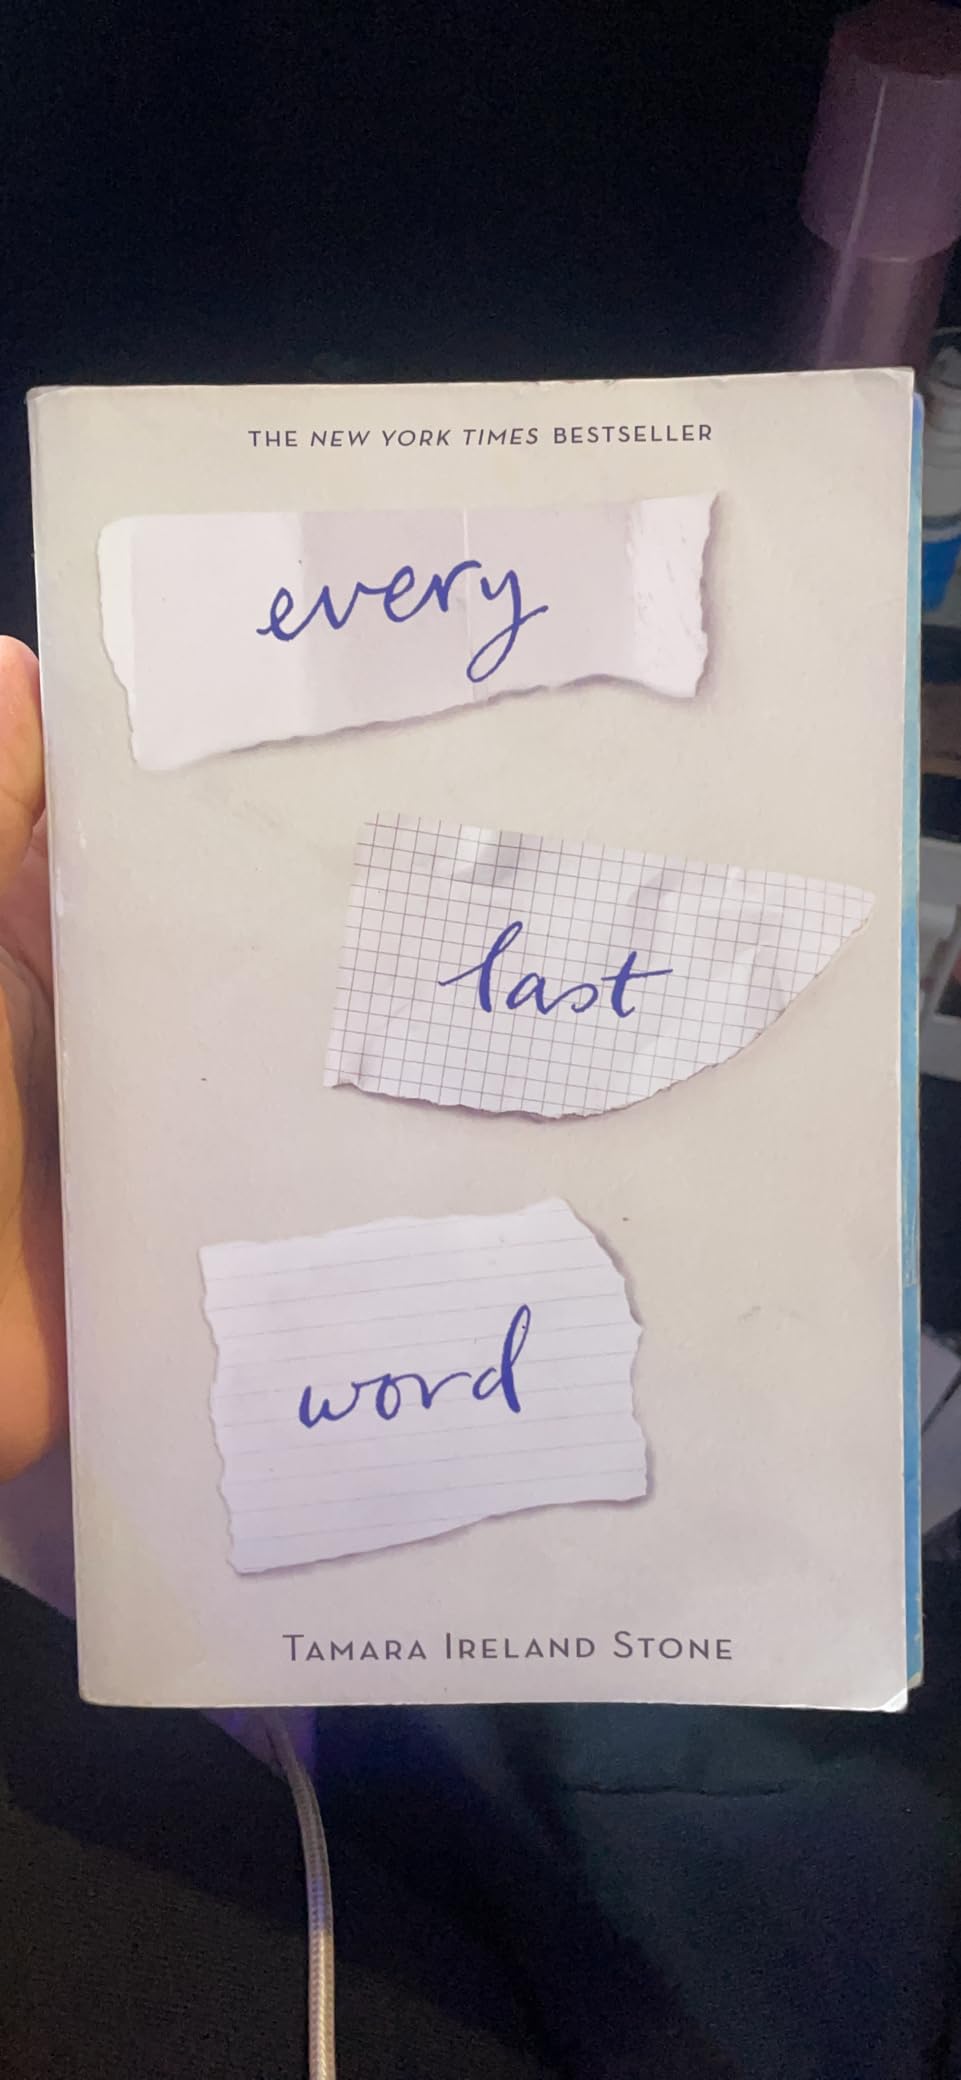 THE NEW YORK TIMES BESTSELLER
every
last
word
TAMARA IRELAND STONE